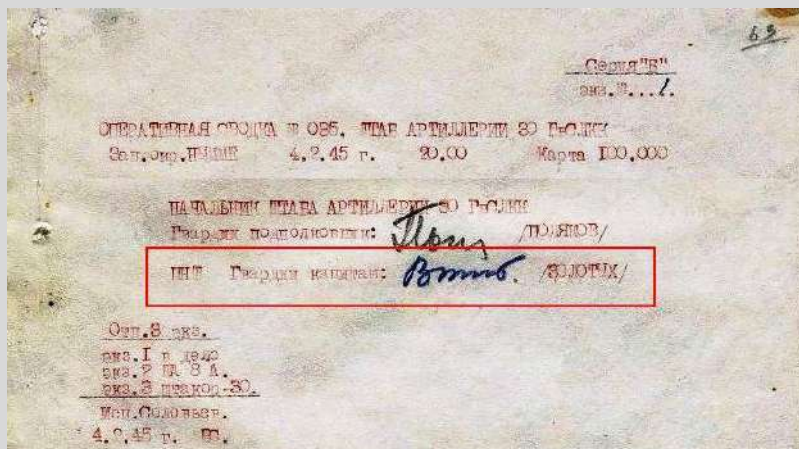 63
Серия "Б"
экз.№...1.
ОПЕРАТИВНАЯ СВОДКА № 035. ШТАБ АРТИЛЛЕРИИ 30 ГвСЛЛК
4.2.45 г. 20.00 Карта 100.000
НАЧАЛЬНИК ШТАБА АРТИЛЛЕРИИ 30
Гвардии подполковник: /ПОЛЯКОВ/
Гвардии капитан: /ЗОЛОТУХ/
Отп.3 экз.
экз.1 в дело
экз.2 8 А.
экз.3 штакор-30.
Исп.Соловьев.
4.2.45 г.